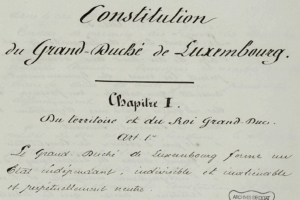 Constitution
du Grand-Duché de Luxembourg.
Chapitre I.
Du territoire et du Roi Grand-Duc.
Art 1er
Le Grand-Duché de Luxembourg forme un
État indépendant, indivisible et inaliénable
et perpétuellement neutre.